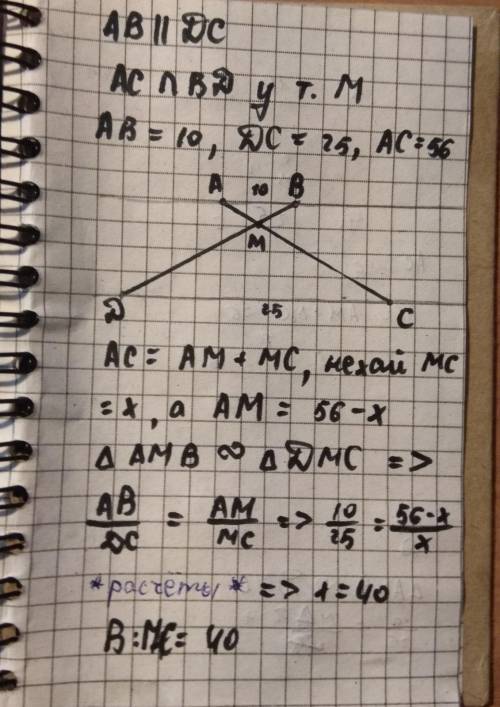 AB || DC
AC ∩ BD у т. М
AB = 10, DC = 25, AC = 56
A 10 B
M
D 25 C
AC = AM + MC, нехай MC
= x, а AM = 56-x
Δ AMB ∞ Δ DMC =>
AB/DC = AM/MC => 10/25 = 56-x/x
*расчёты* => x = 40
В: MC = 40